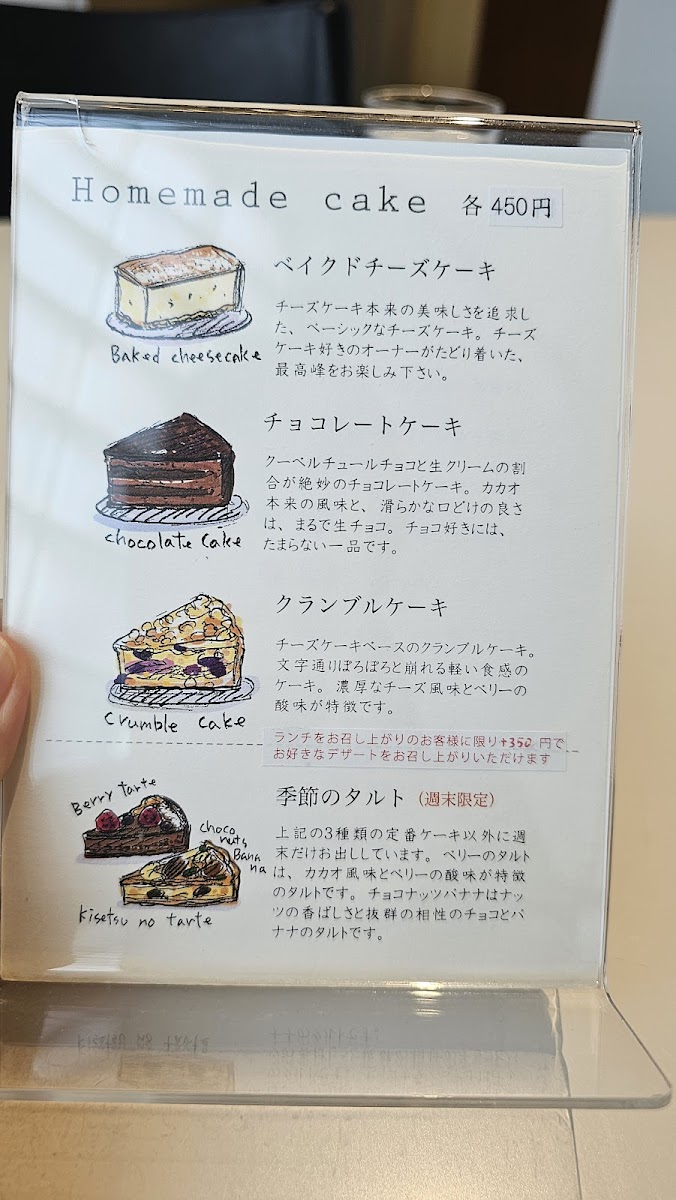 Homemade cake 各 450円
ベイクドチーズケーキ
チーズケーキ本来の美味しさを追求し
た、ベーシックなチーズケーキ。チーズ
ケーキ好きのオーナーがたどり着いた、
最高峰をお楽しみ下さい。
Baked cheesecake
チョコレートケーキ
クーベルチュールチョコと生クリームの割
合が絶妙のチョコレートケーキ。カカオ
本来の風味と、滑らかな口どけの良さ
は、まるで生チョコ。チョコ好きには、
たまらない一品です。
chocolate cake
クランブルケーキ
チーズケーキベースのクランブルケーキ。
文字通りぽろぽろと崩れる軽い食感の
ケーキ。濃厚なチーズ風味とベリーの
酸味が特徴です。
crumble cake
ランチをお召し上がりのお客様に限り+350円で
お好きなデザートをお召し上がりいただけます
季節のタルト (週末限定)
上記の3種類の定番ケーキ以外に週
末だけお出ししています。ベリーのタルト
は、カカオ風味とベリーの酸味が特徴
のタルトです。チョコナッツバナナはナッ
ツの香ばしさと抜群の相性のチョコとバ
ナナのタルトです。
Berry tarte
choco
nuts
Bana
na
kisetsu no tarte